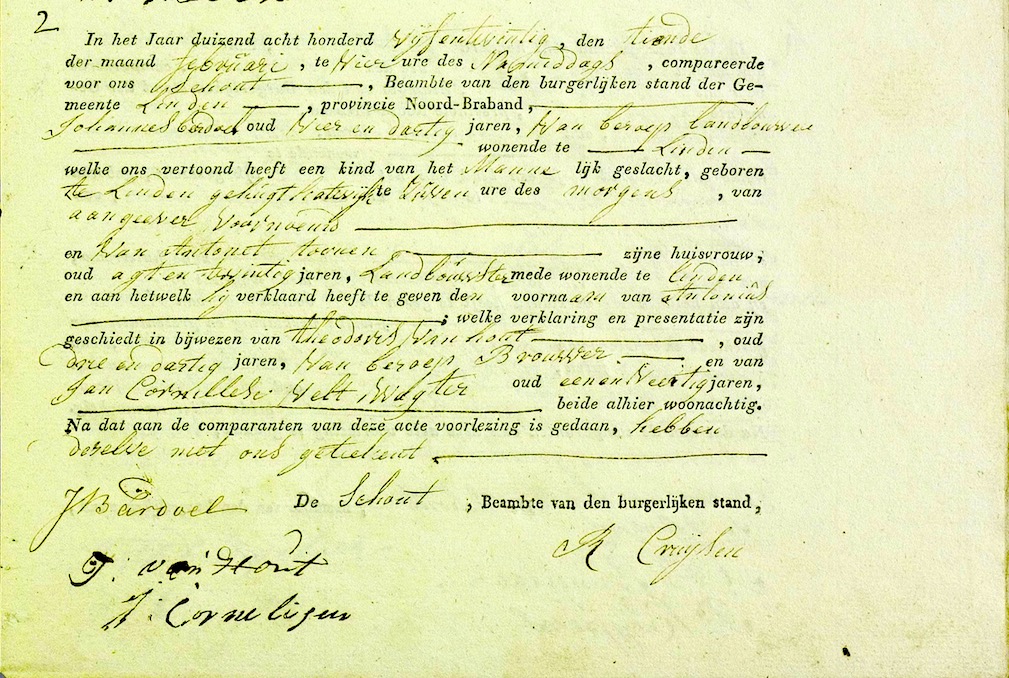 2
In het Jaar duizend acht honderd vijfentvintig, den tiende
der maand februari, te vier ure des Namiddags, compareerde
voor ons Schout, Beambte van den burgerlijken stand der Ge-
meente Linden, provincie Noord-Braband,
Johannes bardoel oud vier en dartig jaren, van beroep landbouwer
wonende te Linden
welke ons vertoond heeft een kind van het Manne lijk geslacht, geboren
te Linden te seven ure des morgens, van
aangeever voornoemd
en van Antonet toonen zijne huisvrouw,
oud agt en tvintig jaren, Landbouwster mede wonende te linden
en aan hetwelk hij verklaard heeft te geven den voornaam van Antonius
; welke verklaring en presentatie zijn
geschiedt in bijwezen van theodoris van hout, oud
Drie en dartig jaren, van beroep Brouwer en van
Jan Cornelisse Velt Wagter oud een en veertig jaren,
beide alhier woonachtig.
Na dat aan de comparanten van deze acte voorlezing is gedaan, hebben
deselve met ons getekent
J Bardoel De Schout, Beambte van den burgerlijken stand,
R Cruijsen
T. van Hout
J. Cornelissen